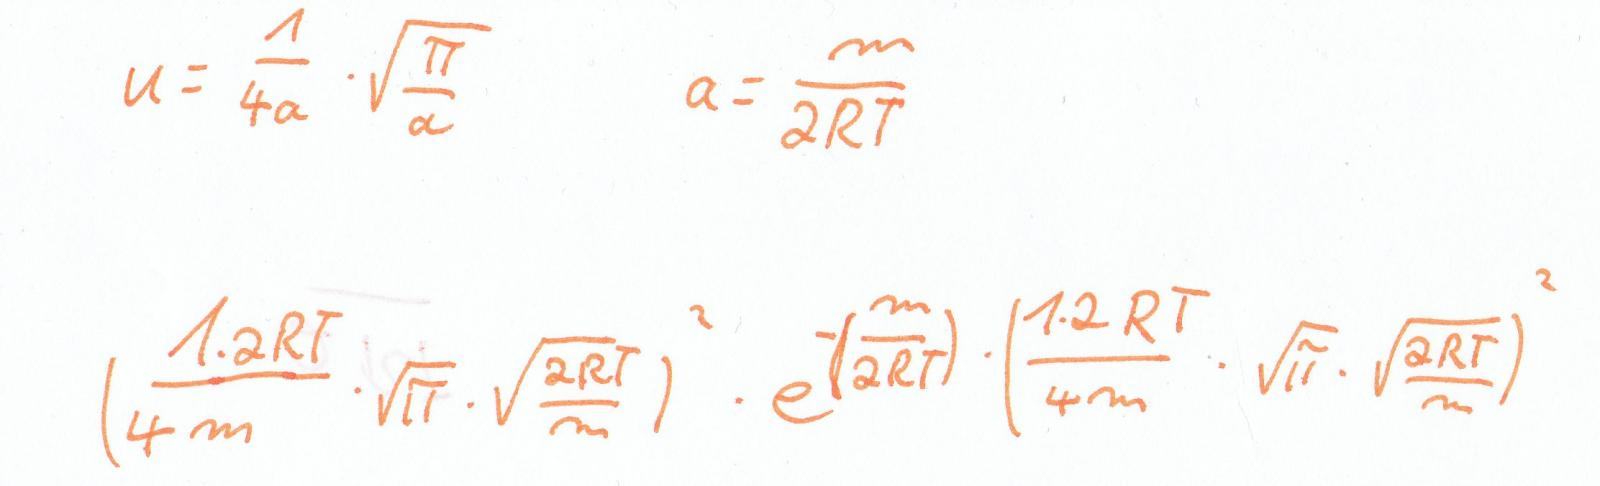 u = 1/4a · √(π/a)   a = m/2RT
(1·2RT/4m · √π · √(2RT/m))² · e^-(m/2RT) · (1·2RT/4m · √π · √(2RT/m))²